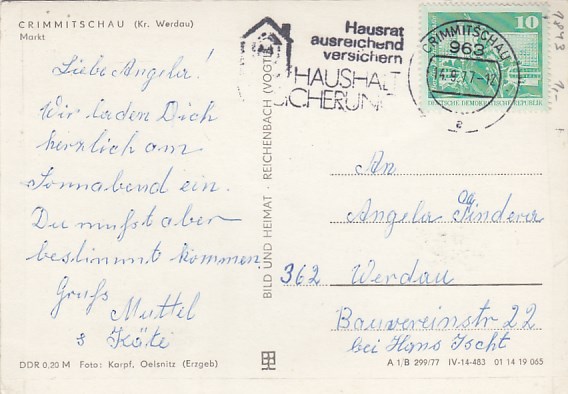 CRIMMITSCHAU (Kr. Werdau)
Markt
Liebe Angela!
Wir laden Dich
herzlich am
Sonnabend ein.
Du mußt aber
bestimmt kommen
Gruß
Muttel
Käte
DDR 0,20 M Foto: Karpf, Oelsnitz (Erzgeb)
BILD UND HEIMAT · REICHENBACH (VOGTL
Hausrat
ausreichend
versichern
HAUSHALT
SICHERUNG
CRIMMITSCHAU
963
14.9.77-12
a
10
DEUTSCHE DEMOKRATISCHE REPUBLIK
An
Angela
362 Werdau
Bauvereinstr 22
bei Hans Jscht
A 1/B 299/77 IV-14-483 01 14 19 065